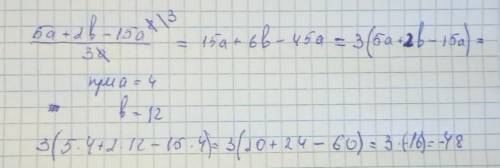 5a+2b-15a^x\3
3x = 15a+6b-45a = 3(5a+2b-15a) =
при a = 4
b = 12
3(5·4+2·12-15·4)=3(20+24-60)=3·(-16)=-48